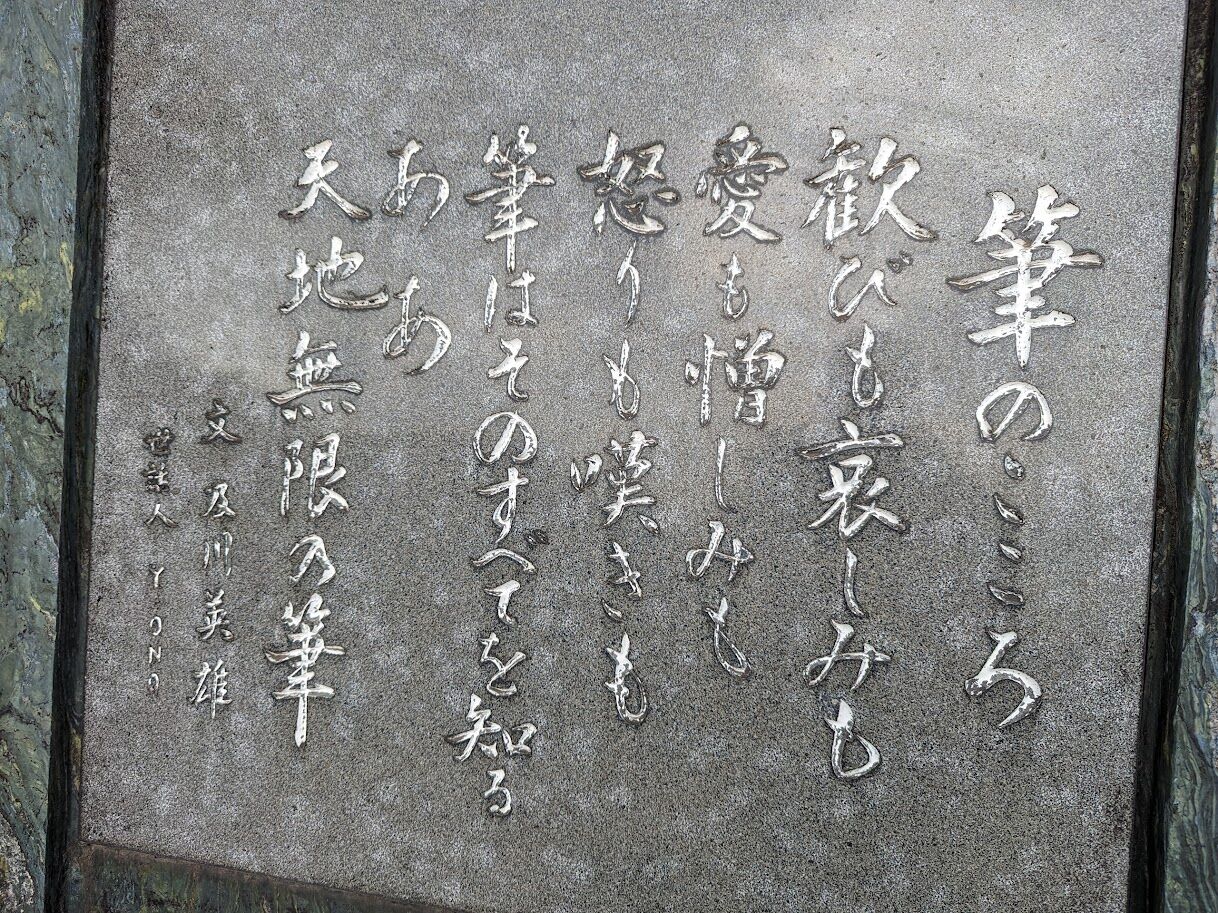 筆のこころ
歓びも哀しみも
愛も憎しみも
怒りも嘆きも
筆はそのすべてを知る
ああ
天地無限の筆
文 及川英雄
世話人 YONO